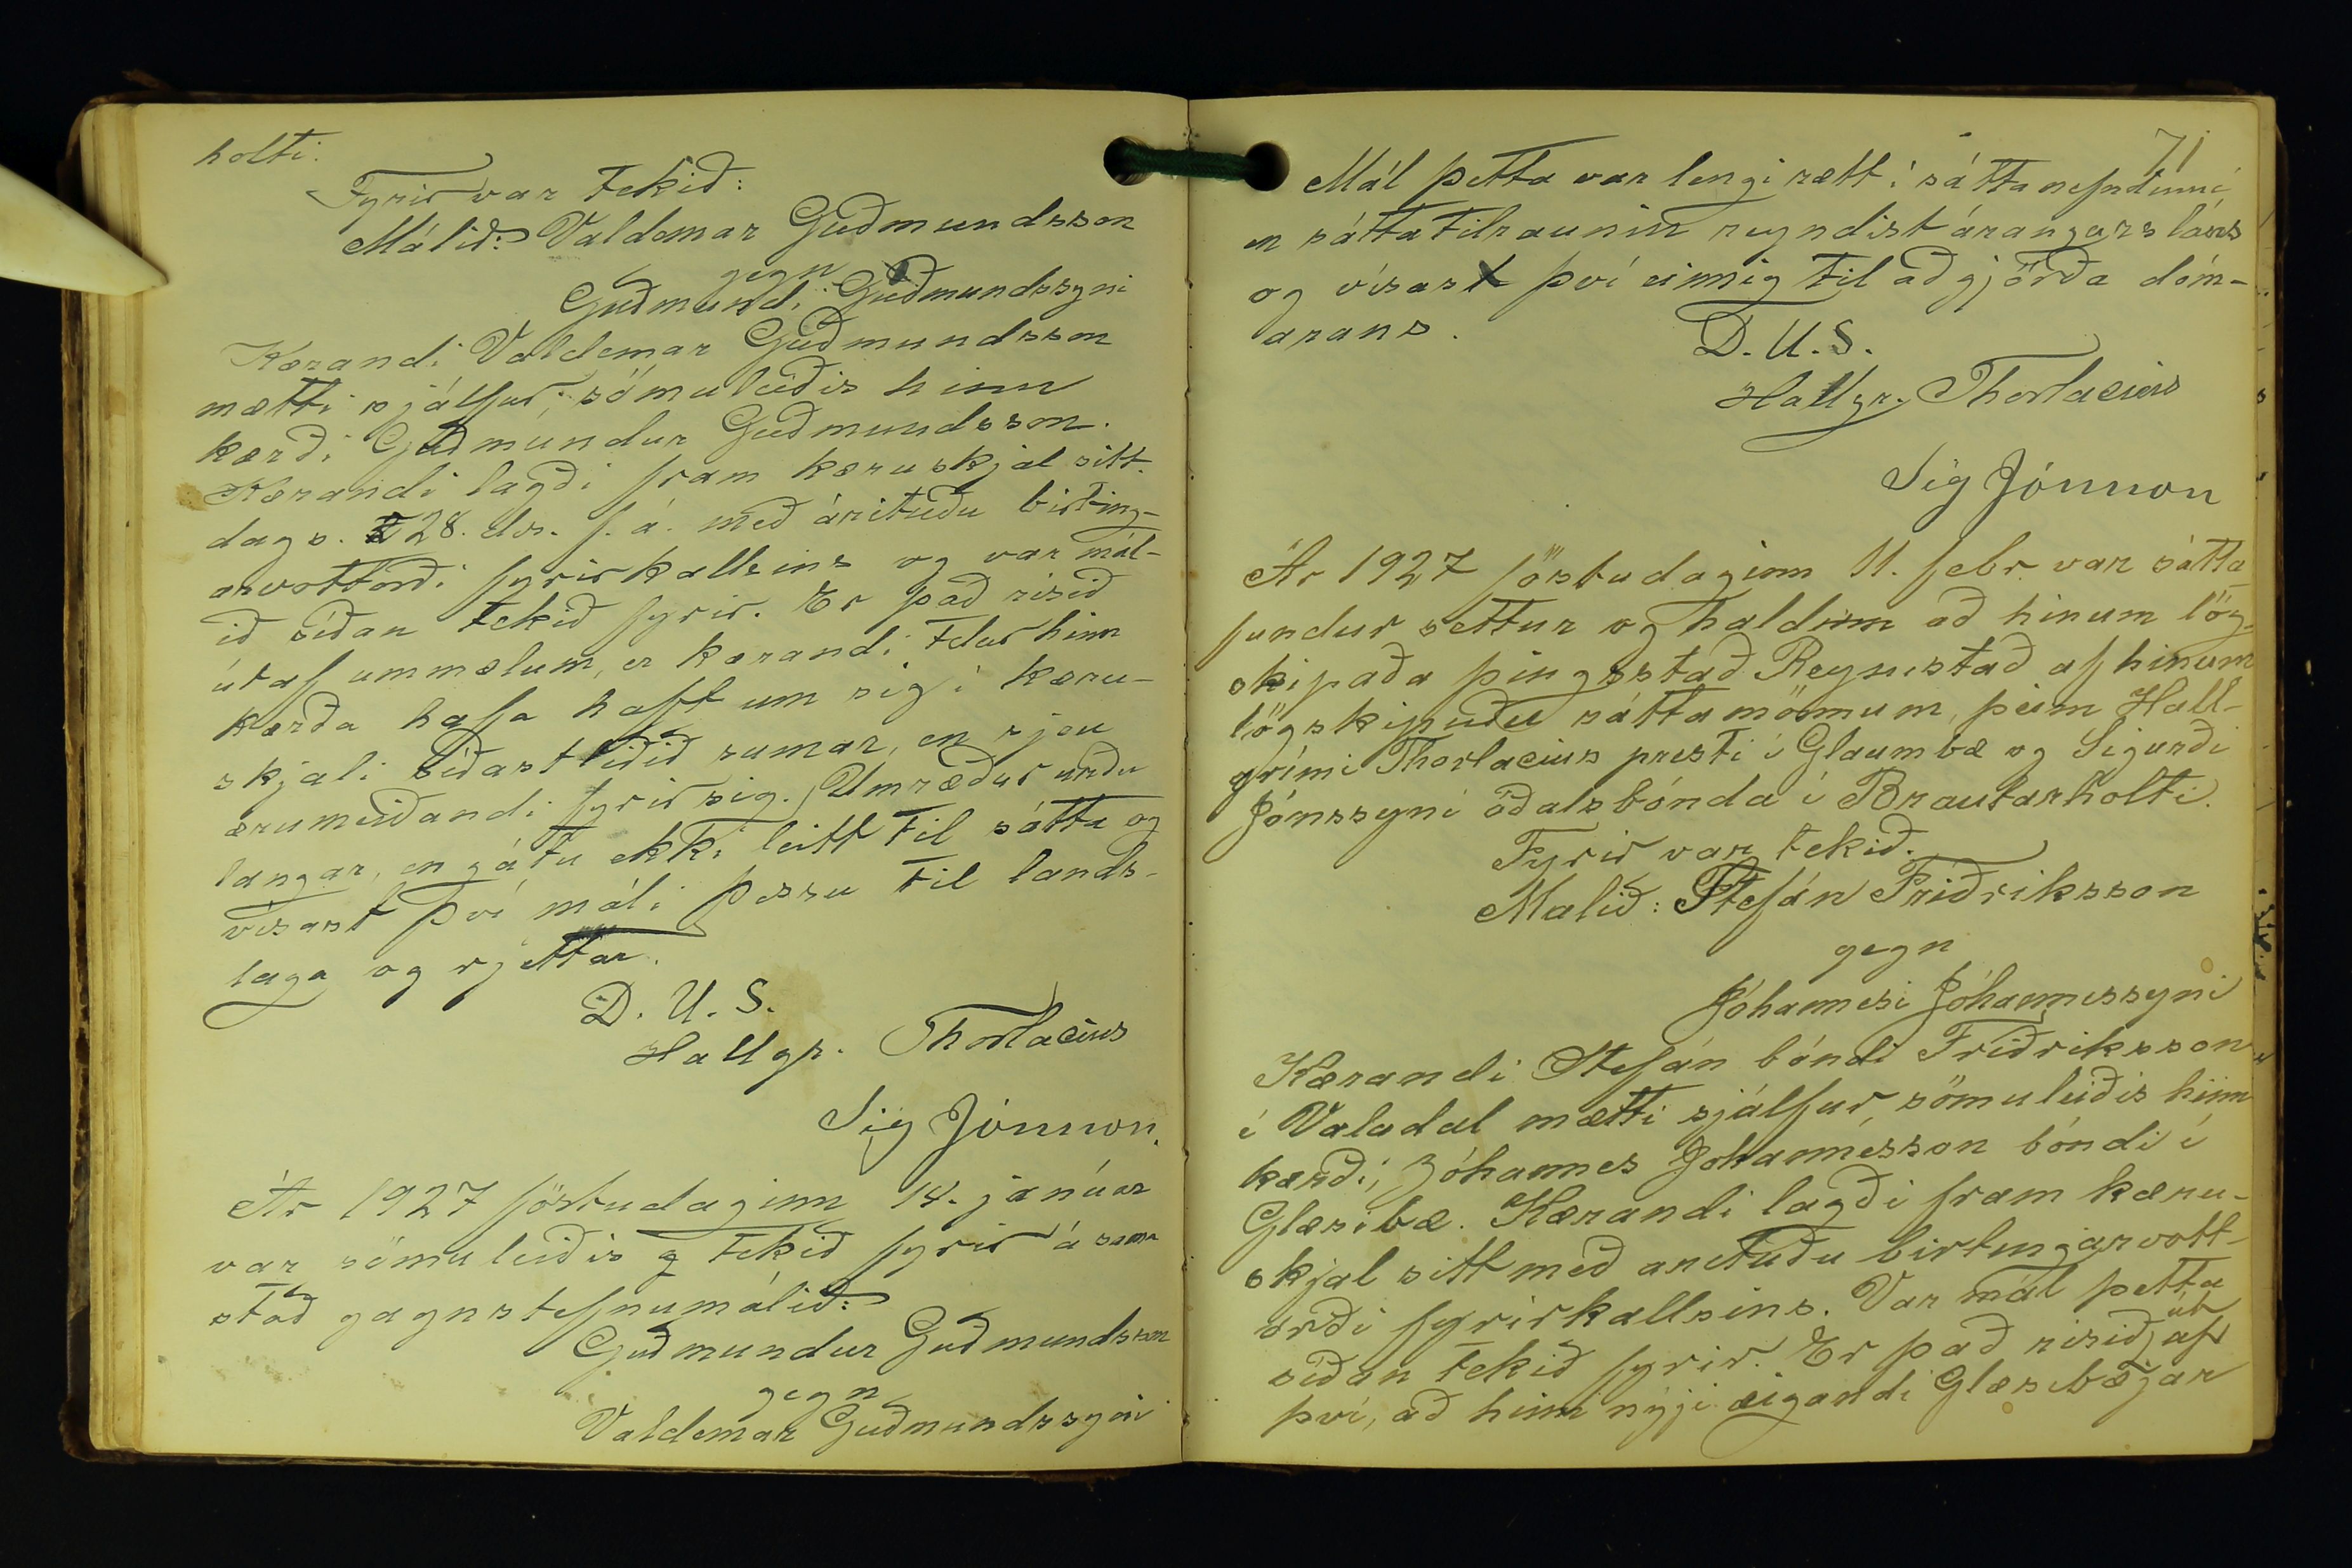 holti.
Fyrir var tekið:
Málið: Valdemar Guðmundsson
gegn
Guðmundi Guðmundssyni
Kærandi Valdemar Guðmundsson
mætti sjálfur, sömuleiðis hinn
kærði Guðmundur Guðmundsson.
Kærandi lagði fram kæruskjal sitt
dags. 28. des. f. á. með árituðu birting-
arvottorði fyrirkallsins og var mál-
ið síðan tekið fyrir. Er það risið
útaf ummælum, er kærandi telur hinn
kærða hafa haft um sig í kæru-
skjali síðastliðið sumar, en sjeu
ærumeiðandi fyrir sig. Umræður urðu
langar, en gátu ekki leitt til sátta og
vísast því máli þessu til lands-
laga og rjettar.
D. U. S.
Hallgr. Thorlacius
Sig Jónsson.
Ár 1927 föstudaginn 14. janúar
var sömuleiðis tekið fyrir á sama
stað gagnstefnumálið:
Guðmundur Guðmundsson
gegn
Valdemar Guðmundssyni
71
Mál þetta var lengi rætt í sáttanefndinni
en sáttatilraunin reyndist árangurslaus
og vísast því einnig til aðgjörða dóm-
arans.
D. U. S.
Hallgr. Thorlacius
Sig Jónsson
Ár 1927 föstudaginn 11. febr. var sátta-
fundur settur og haldinn að hinum lög-
skipaða þingsstað Reynistað af hinum
lögskipuðu sáttamönnum, þeim Hall-
grími Thorlacius presti í Glaumbæ og Sigurði
Jónssyni óðalsbónda í Brautarholti.
Fyrir var tekið.
Malið: Stefán Friðriksson
gegn
Jóhannesi Jóhannessyni
Kærandi Stefán bóndi Friðriksson
í Valadal mætti sjálfur, sömuleiðis hinn
kærði, Jóhannes Jóhannesson bóndi í
Glæsibæ. Kærandi lagði fram kæru-
skjal sitt með arituðu birtingarvott-
orði fyrirkallsins. Var mál þetta
síðan tekið fyrir. Er það risið út af
því, að hinn nýji eigandi Glæsibæjar